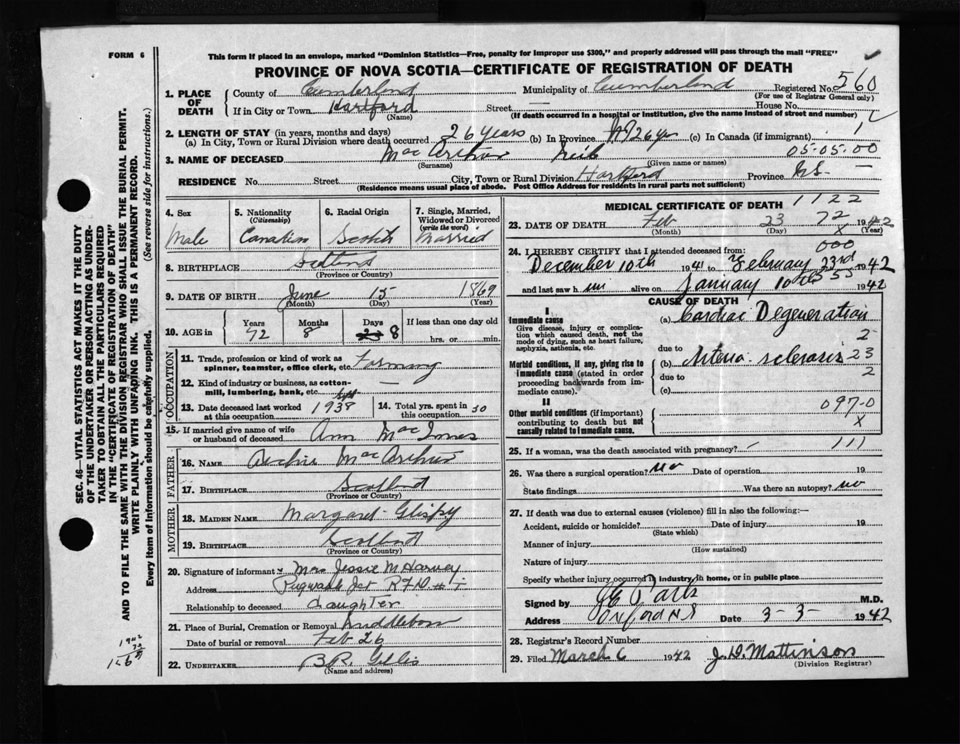 FORM 6
This form if placed in an envelope, marked "Dominion Statistics—Free, penalty for improper use $300," and properly addressed will pass through the mail "FREE"
PROVINCE OF NOVA SCOTIA—CERTIFICATE OF REGISTRATION OF DEATH
1. PLACE OF DEATH County of Cumberland Municipality of Cumberland Registered No. 560
(For use of Registrar General only)
If in City or Town Hartford Street House No.
(Name) (If death occurred in a hospital or institution, give the name instead of street and number)
2. LENGTH OF STAY (in years, months and days)
(a) In City, Town or Rural Division where death occurred 26 years (b) In Province 26 yr (c) In Canada (if immigrant) 1
3. NAME OF DECEASED MacArthur Neil 05-05-00
(Surname) (Given name or names)
RESIDENCE No. Street City, Town or Rural Division Hartford Province N.S.
(Residence means usual place of abode. Post Office Address for residents in rural parts not sufficient)
4. Sex Male
5. Nationality (Citizenship) Canadian
6. Racial Origin Scotch
7. Single, Married, Widowed or Divorced (write the word) Married
8. BIRTHPLACE Scotland
(Province or Country)
9. DATE OF BIRTH June 15 1869
(Month) (Day) (Year)
10. AGE in Years Months Days If less than one day old
72 8 8 hrs. or min.
OCCUPATION
11. Trade, profession or kind of work as spinner, teamster, office clerk, etc. Farming
12. Kind of industry or business, as cotton-mill, lumbering, bank, etc. —
13. Date deceased last worked at this occupation Sept 1938
14. Total yrs. spent in this occupation 50
15. If married give name of wife or husband of deceased Ann MacInnes
FATHER
16. NAME Archie MacArthur
17. BIRTHPLACE Scotland
(Province or Country)
MOTHER
18. MAIDEN NAME Margaret
19. BIRTHPLACE Scotland
(Province or Country)
20. Signature of informant Mrs Jessie M Harvey
Address Pugwash Jct R.F.D. # 1
Relationship to deceased daughter
21. Place of Burial, Cremation or Removal Middleboro
Date of burial or removal Feb 26
22. UNDERTAKER B.R. Gillis
(Name and address)
MEDICAL CERTIFICATE OF DEATH 1122
23. DATE OF DEATH Feb 23 72 1942
(Month) (Day) x (Year)
24. I HEREBY CERTIFY that I attended deceased from: 000
December 10th 1941 to February 23rd 1942
and last saw him alive on January 10th 55 1942
CAUSE OF DEATH
I
Immediate cause
Give disease, injury or complication which caused death, not the mode of dying, such as heart failure, asphyxia, asthenia, etc.
(a) Cardiac Degeneration
2
Morbid conditions, if any, giving rise to immediate cause (stated in order proceeding backwards from immediate cause).
due to
(b) Arterio-sclerosis 23
due to 2
(c)
II
Other morbid conditions (if important) contributing to death but not causally related to immediate cause.
097-0
X
25. If a woman, was the death associated with pregnancy? 111
26. Was there a surgical operation? no Date of operation 19
State findings Was there an autopsy? no
27. If death was due to external causes (violence) fill in also the following:—
Accident, suicide or homicide? Date of injury 19
(State which)
Manner of injury
(How sustained)
Nature of injury
Specify whether injury occurred in industry, in home, or in public place
Signed by M.D.
Address Oxford NS Date 3-3- 1942
28. Registrar's Record Number
29. Filed March 6 1942 J.D. Mattinson
(Division Registrar)
SEC. 46—VITAL STATISTICS ACT MAKES IT THE DUTY
OF THE UNDERTAKER OR PERSON ACTING AS UNDERTAKER TO OBTAIN ALL THE PARTICULARS REQUIRED
IN THE "CERTIFICATE OF REGISTRATION OF DEATH"
AND TO FILE THE SAME WITH THE DIVISION REGISTRAR WHO SHALL ISSUE THE BURIAL PERMIT.
WRITE PLAINLY WITH UNFADING INK. THIS IS A PERMANENT RECORD.
Every item of Information should be carefully supplied. (See reverse side for instructions.)
1942
72